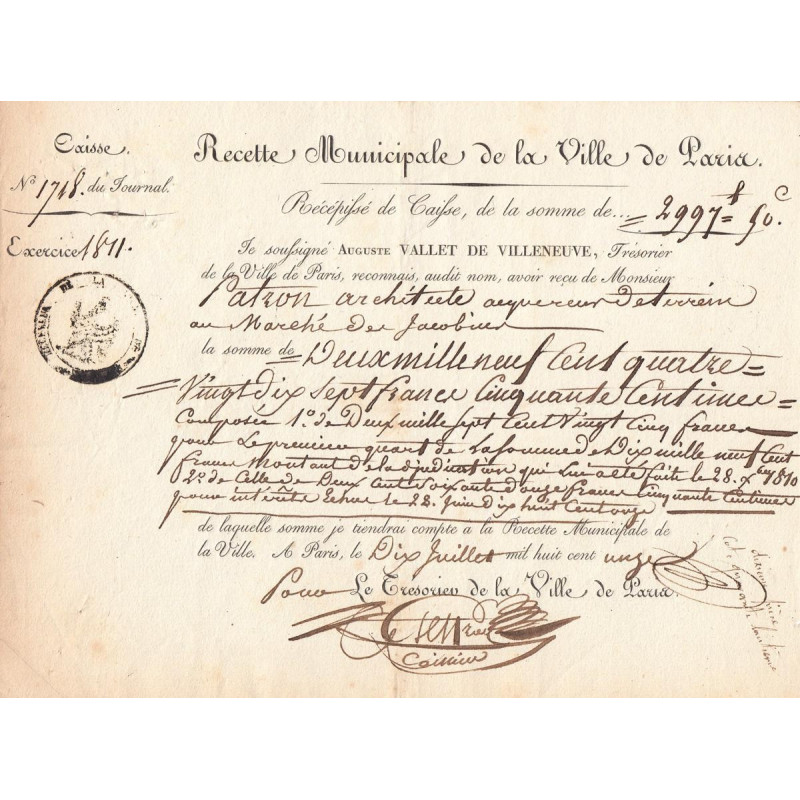 Caisse.
N.o 1718. du Journal.
Exercice 1811.
Recette Municipale de la Ville de Paris.
Récépissé de Caisse, de la somme de... = 2997 f = 50. c
Je soussigné AUGUSTE VALLET DE VILLENEUVE, Trésorier
de la Ville de Paris, reconnais, audit nom, avoir reçu de Monsieur
Patron architecte acquereur de terrein
au Marché des Jacobins
la somme de Deux mille neuf Cent quatre =
= Vingt Dix sept francs Cinquante Centimes =
Composée 1.o de Deux mille sept Cent Vingt Cinq francs
pour le premier quart de la somme de Dix mille neuf Cent
francs Montant de l'adjudication qui lui a été faite le 28. Xbre 1810
2.o de Celle de Deux Cent soixante douze francs Cinquante Centimes
pour intérêts Echus le 28. Juin Dix huit Cent onze
de laquelle somme je tiendrai compte a la Recette Municipale de
la Ville. A Paris, le Dix Juillet mil huit cent onze
Pour Le Tresorier de la Ville de Paris.
Caissier